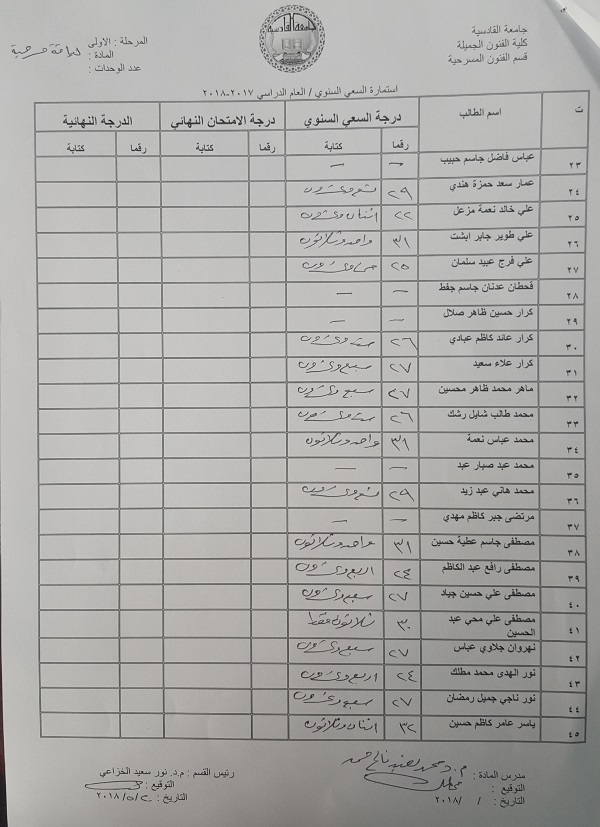 جامعة القادسية
كلية الفنون الجميلة
قسم الفنون المسرحية
جامعة القادسية
المرحلة : الاولى
المادة :
عدد الوحدات :
استمارة السعي السنوي / العام الدراسي ٢٠١٧-٢٠١٨
ت اسم الطالب درجة السعي السنوي درجة الامتحان النهائي الدرجة النهائية
رقما كتابة رقما كتابة رقما كتابة
٢٣ عباس فاضل جاسم حبيب — —
٢٤ عمار سعد حمزة هندي ٢٩ تسع وعشرون
٢٥ علي خالد نعمة مزعل ٢٢ اثنان وعشرون
٢٦ علي طوير جابر ابشت ٣١ واحد وثلاثون
٢٧ علي فرج عبيد سلمان ٢٥ خمس وعشرون
٢٨ قحطان عدنان جاسم جفط — —
٢٩ كرار حسين ظاهر صلال — —
٣٠ كرار عائد كاظم عبادي ٢٦ ست وعشرون
٣١ كرار علاء سعيد ٢٧ سبع وعشرون
٣٢ ماهر محمد ظاهر محسين ٢٧ سبع وعشرون
٣٣ محمد طالب شايل رشك ٢٦ ست وعشرون
٣٤ محمد عباس نعمة ٣١ واحد وثلاثون
٣٥ محمد عبد صبار عبد — —
٣٦ محمد هاني عبد زيد ٢٩ تسع وعشرون
٣٧ مرتضى جبر كاظم مهدي — —
٣٨ مصطفى جاسم عطية حسين ٣١ واحد وثلاثون
٣٩ مصطفى رافع عبد الكاظم ٢٤ اربع وعشرون
٤٠ مصطفى علي حسين جياد ٢٧ سبع وعشرون
٤١ مصطفى علي محي عبد الحسين ٣٠ ثلاثون فقط
٤٢ نهروان جلاوي عباس ٢٧ سبع وعشرون
٤٣ نور الهدى محمد مطلك ٢٤ اربع وعشرون
٤٤ نور ناجي جميل رمضان ٢٧ سبع وعشرون
٤٥ ياسر عامر كاظم حسين ٣٢ اثنان وثلاثون
مدرس المادة : م.د محمد
التوقيع :
التاريخ : / /٢٠١٨
رئيس القسم : م.د. نور سعيد الخزاعي
التوقيع :
التاريخ : ٢ /٥/٢٠١٨